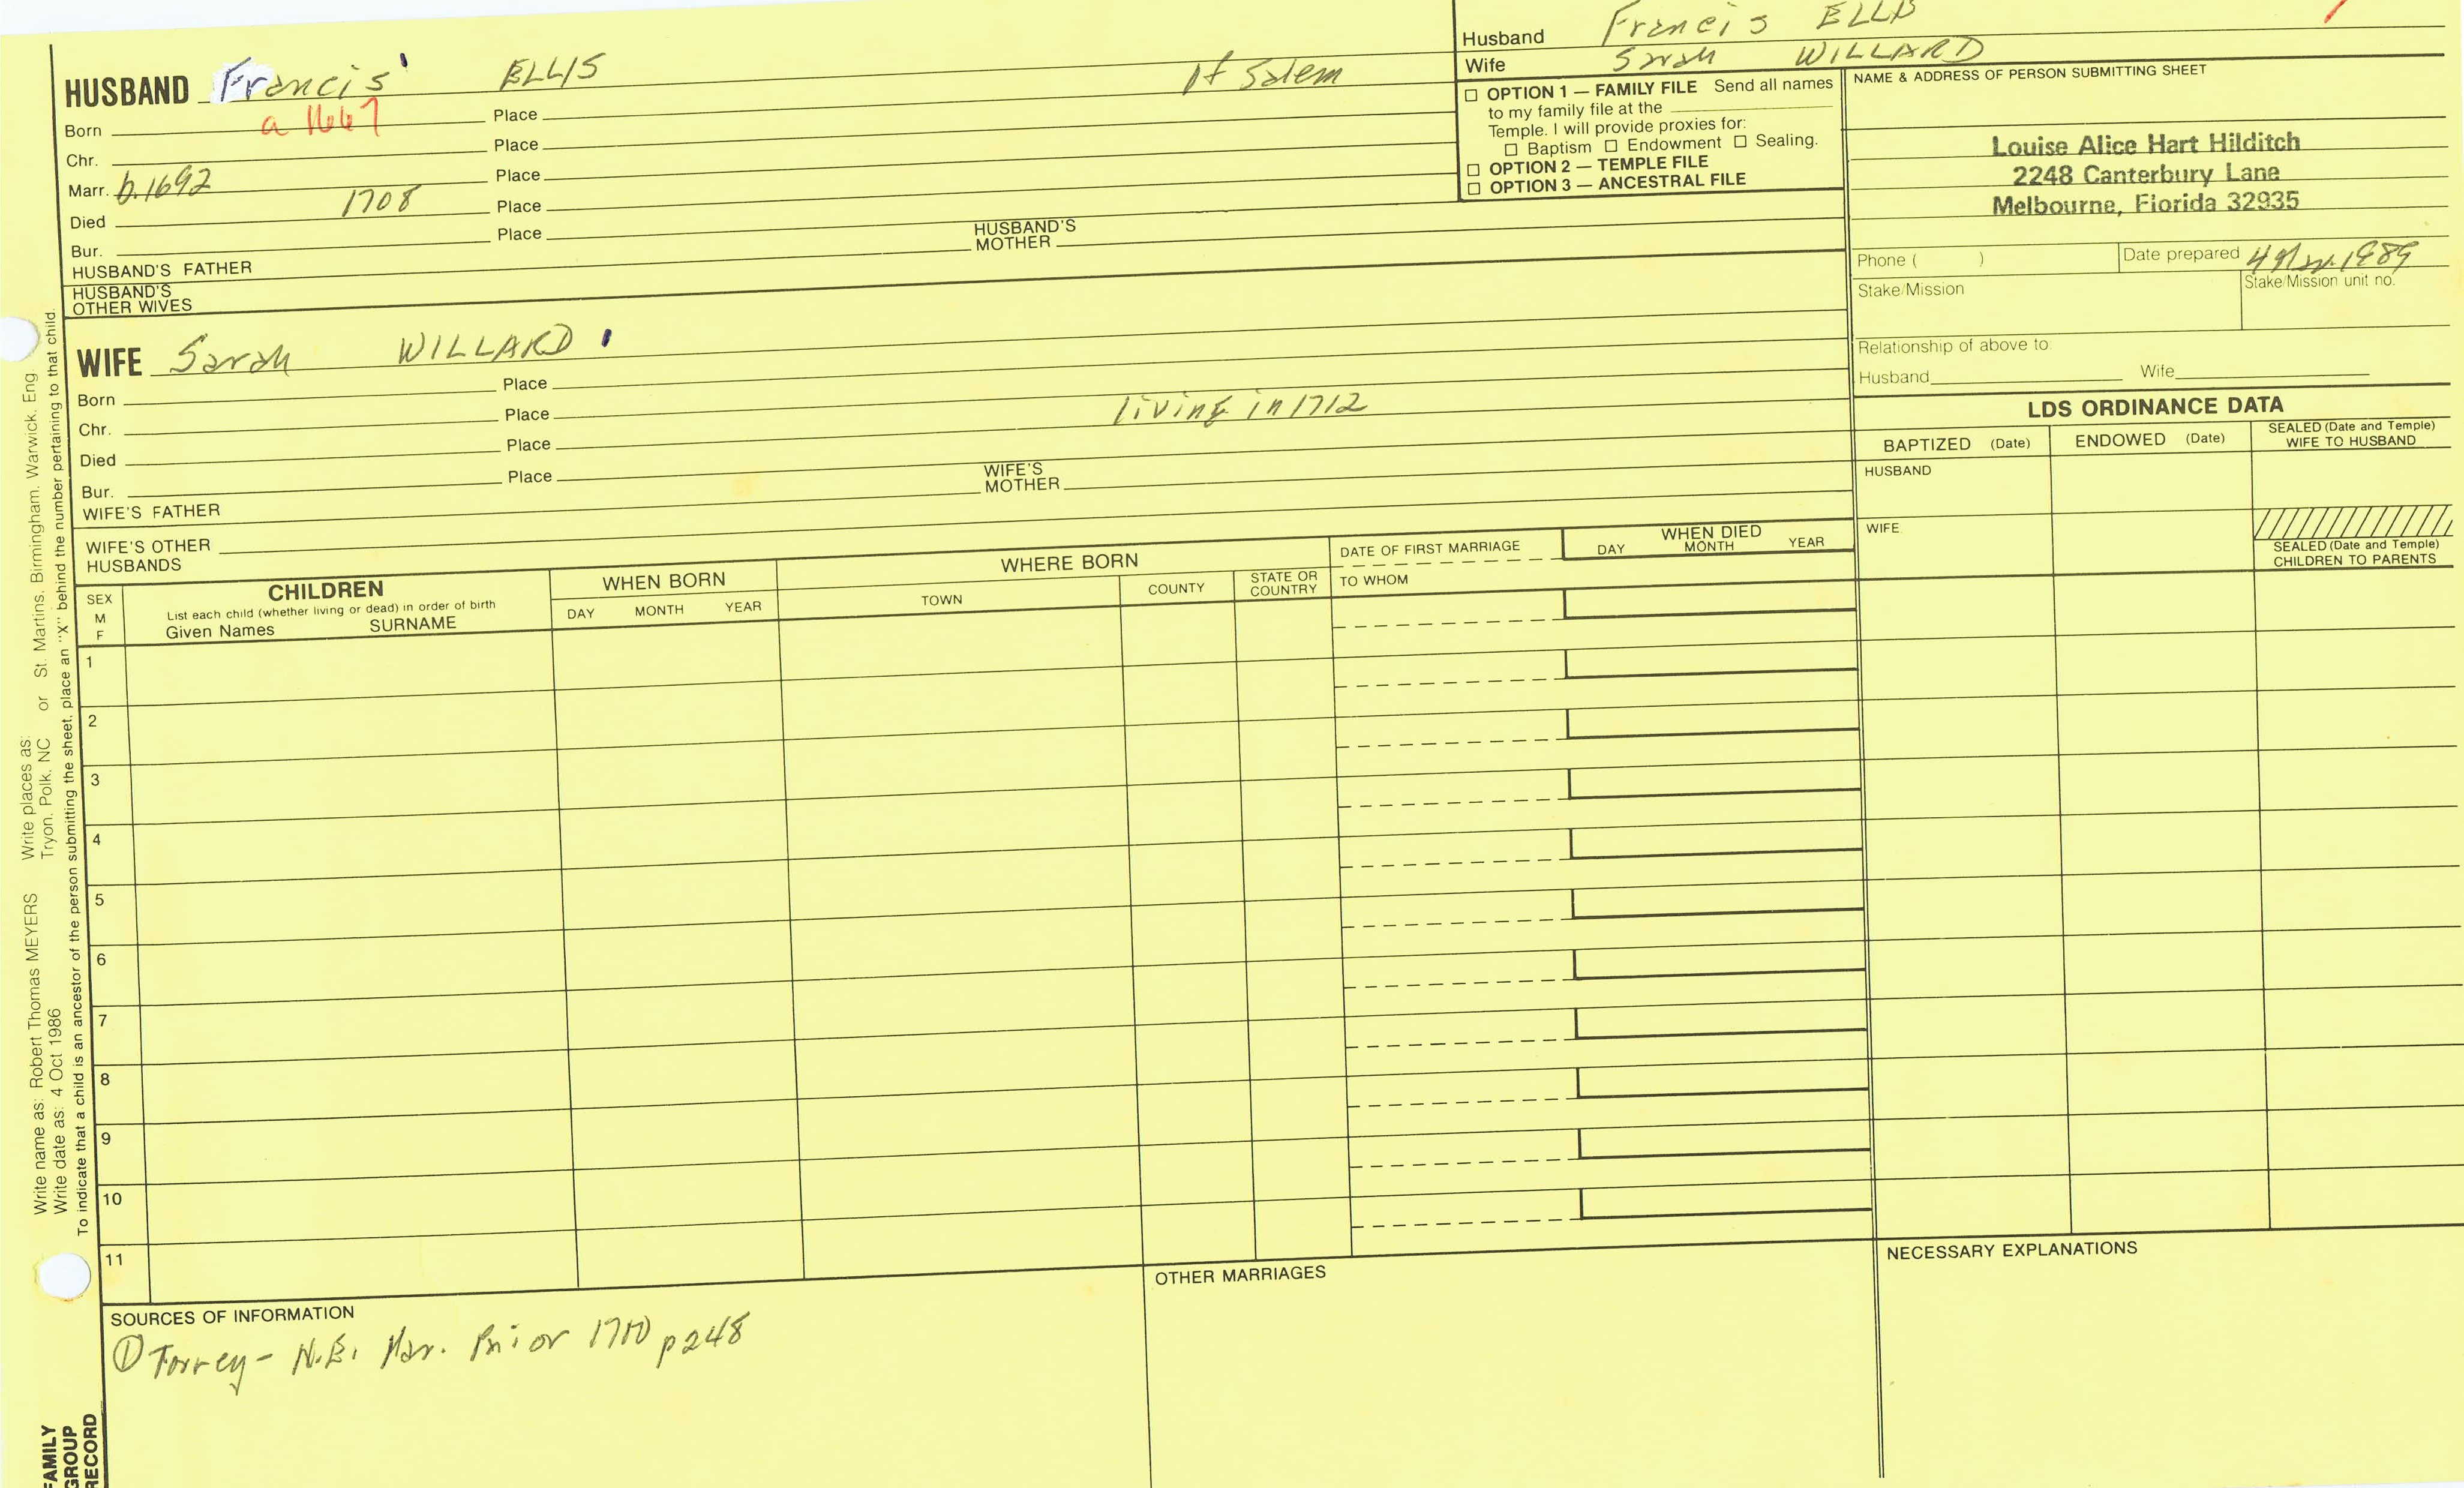 Husband Francis ELLIS
Wife Sarah WILLARD
HUSBAND Francis ' ELLIS of Salem
Born a 1667 Place
Chr. Place
Marr. b.1692 Place
Died 1708 Place
Bur. Place
HUSBAND'S FATHER
HUSBAND'S MOTHER
HUSBAND'S OTHER WIVES
☐ OPTION 1 — FAMILY FILE Send all names
to my family file at the
Temple. I will provide proxies for:
☐ Baptism ☐ Endowment ☐ Sealing.
☐ OPTION 2 — TEMPLE FILE
☐ OPTION 3 — ANCESTRAL FILE
NAME & ADDRESS OF PERSON SUBMITTING SHEET
Louise Alice Hart Hilditch
2248 Canterbury Lane
Melbourne, Florida 32935
Phone ( )
Date prepared 4 1989
Stake/Mission
Stake/Mission unit no.
Relationship of above to:
Husband Wife
WIFE Sarah WILLARD '
Born Place
Chr. Place living in 1712
Died Place
Bur. Place
WIFE'S FATHER
WIFE'S MOTHER
WIFE'S OTHER
HUSBANDS
LDS ORDINANCE DATA
BAPTIZED (Date) ENDOWED (Date) SEALED (Date and Temple)
WIFE TO HUSBAND
HUSBAND
WIFE
SEALED (Date and Temple)
CHILDREN TO PARENTS
SEX
M
F
CHILDREN
List each child (whether living or dead) in order of birth
Given Names SURNAME
WHEN BORN
DAY MONTH YEAR
WHERE BORN
TOWN COUNTY STATE OR
COUNTRY
DATE OF FIRST MARRIAGE
TO WHOM
WHEN DIED
DAY MONTH YEAR
1
2
3
4
5
6
7
8
9
10
11
SOURCES OF INFORMATION
① Torrey - N.E. Mar. Prior 1700 p248
OTHER MARRIAGES
NECESSARY EXPLANATIONS
Write name as: Robert Thomas MEYERS Write places as: St. Martins, Birmingham, Warwick, Eng.
Write date as: 4 Oct 1986 Tryon, Polk, NC or
To indicate that a child is an ancestor of the person submitting the sheet, place an "X" behind the number pertaining to that child.
FAMILY
GROUP
RECORD